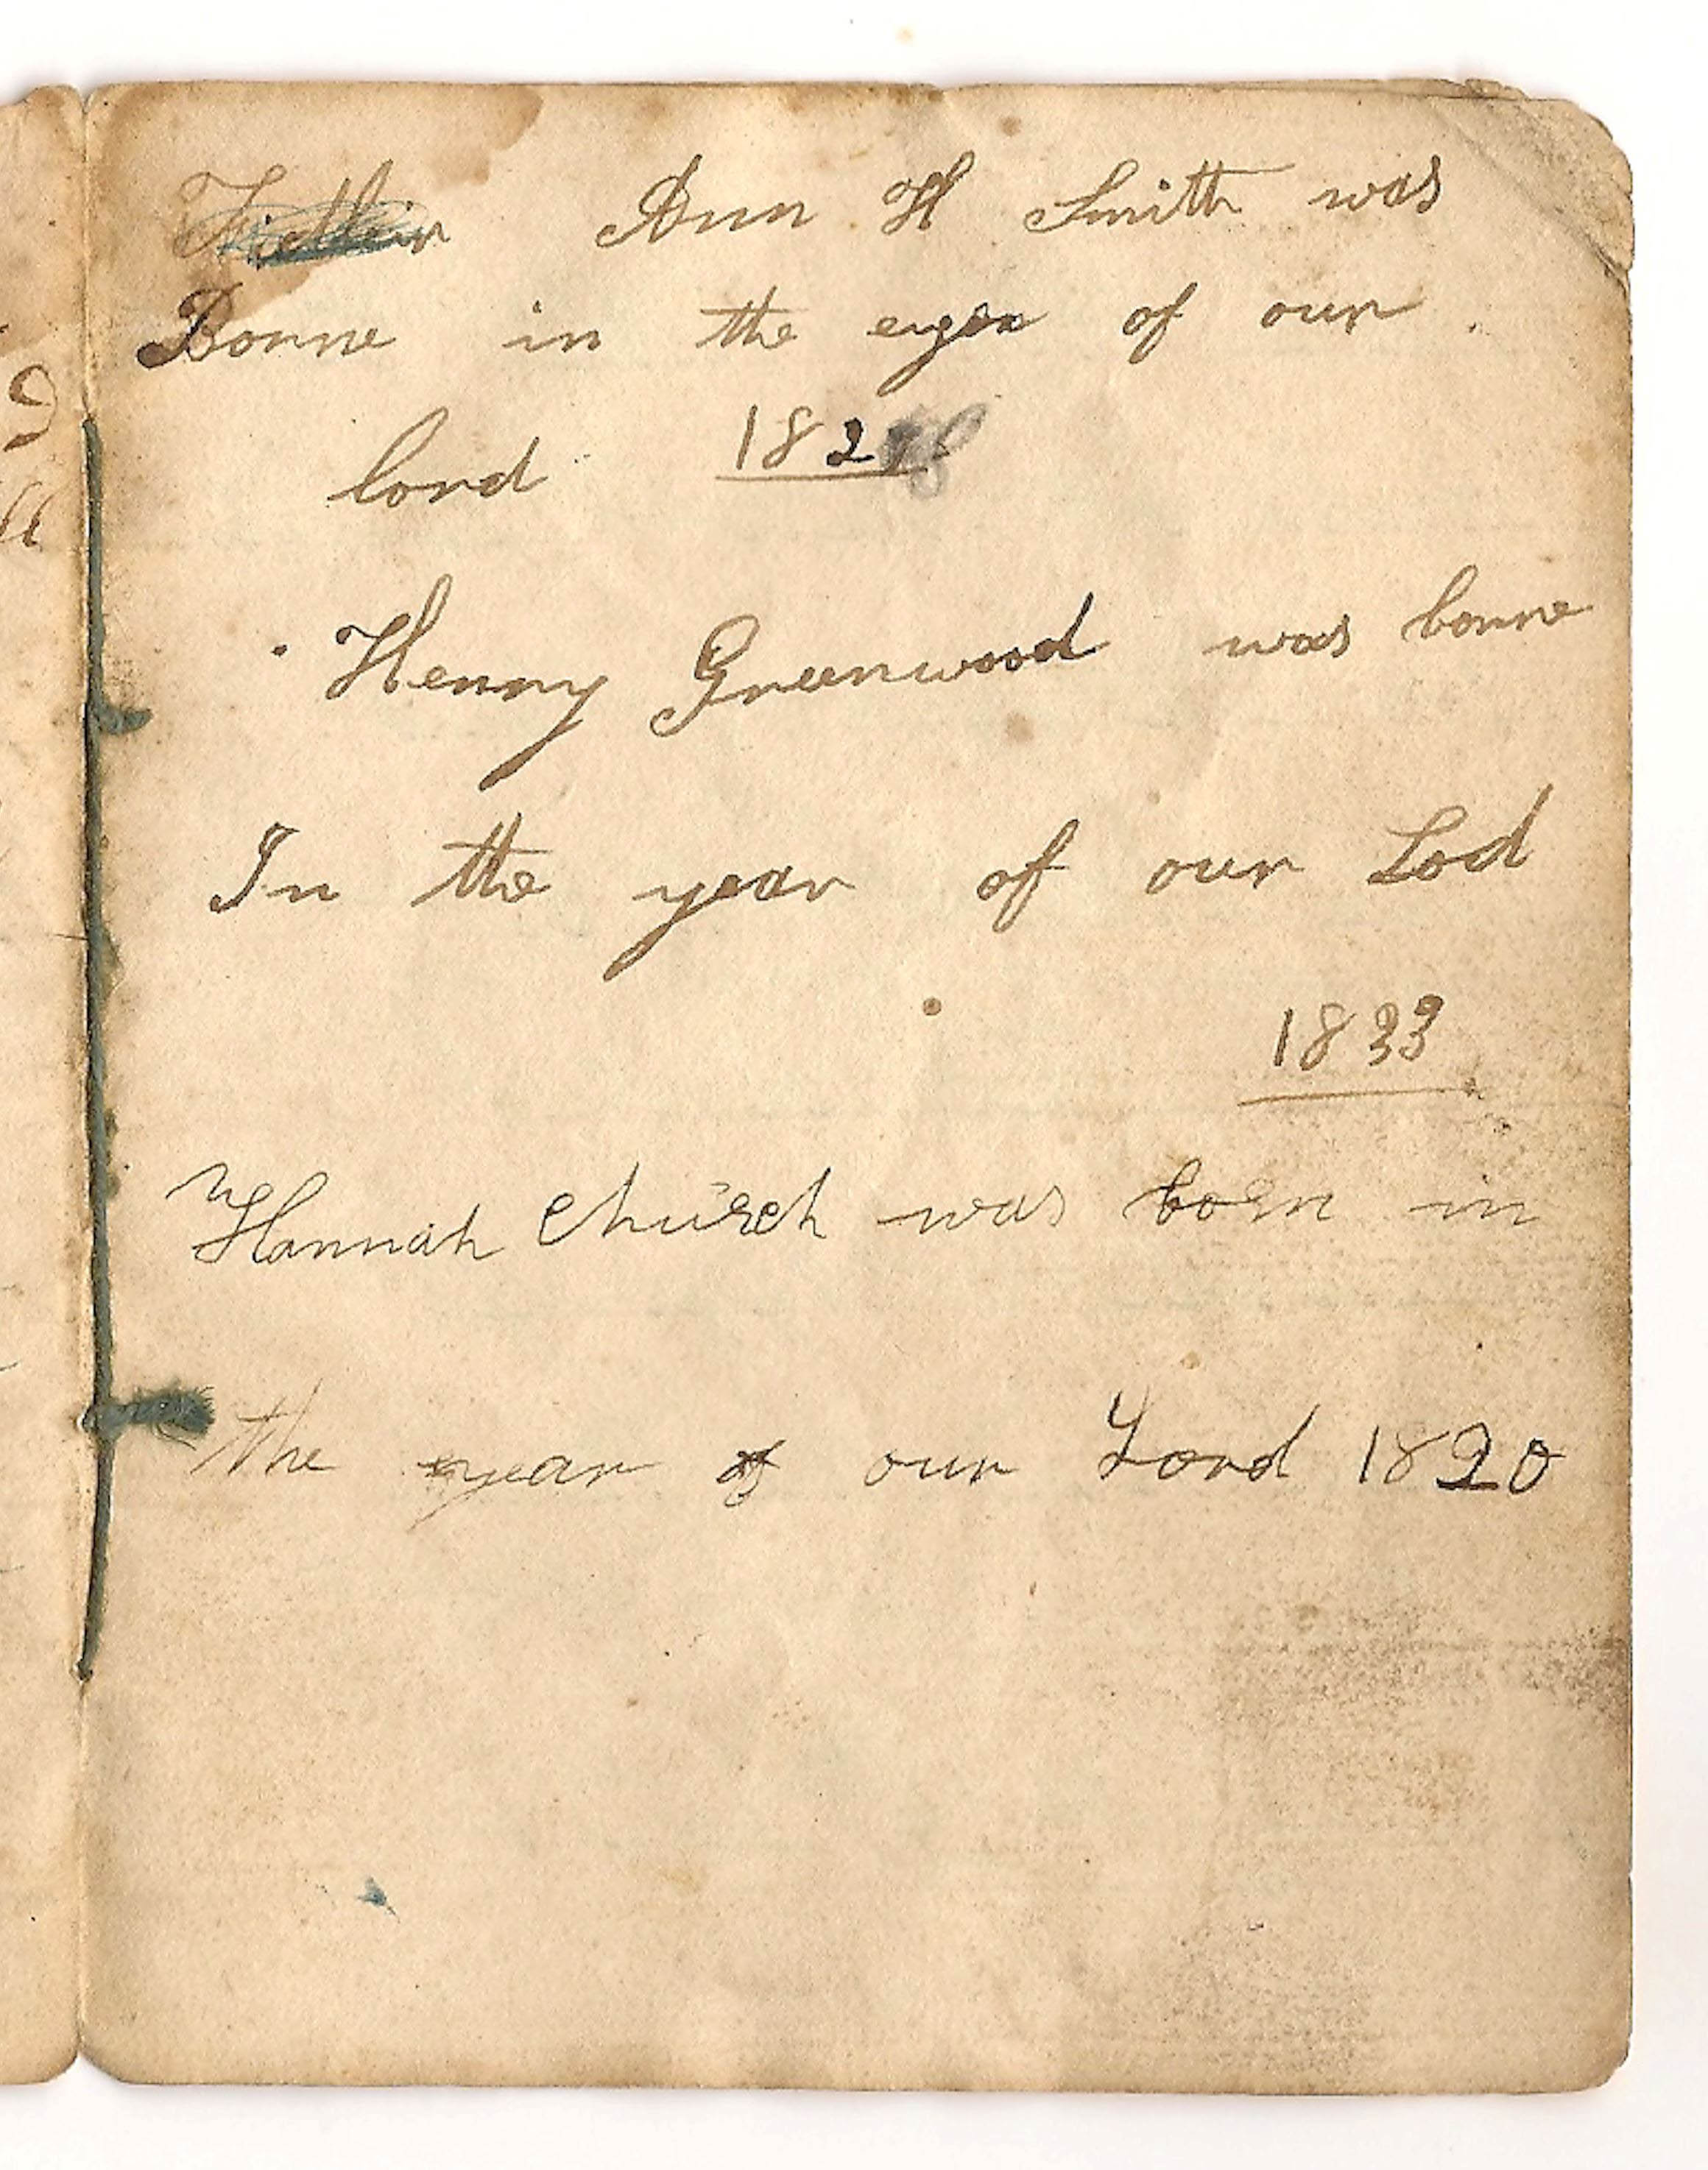 Ann H Smith was
Borne in the eyea of our
lord 182
Henny Greenwood was borne
In the year of our Lod
1833
Hannah Church was born in
the year of our Lord 1820